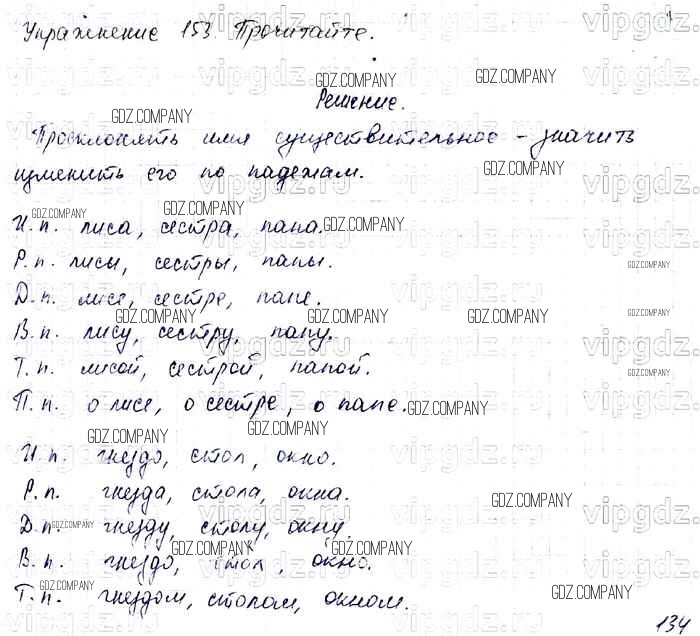 Упражнение 153. Прочитайте.
Решение.
Просклонять имя существительное - значит
изменить его по падежам.
И.п. лиса, сестра, папа.
Р.п. лисы, сестры, папы.
Д.п. лисе, сестре, папе.
В.п. лису, сестру, папу.
Т.п. лисой, сестрой, папой.
П.п. о лисе, о сестре, о папе.
И.п. гнездо, стол, окно.
Р.п. гнезда, стола, окна.
Д.п. гнезду, столу, окну.
В.п. гнездо, стол, окно.
Т.п. гнездом, столом, окном.
134
GDZ.COMPANY
vipgdz.ru